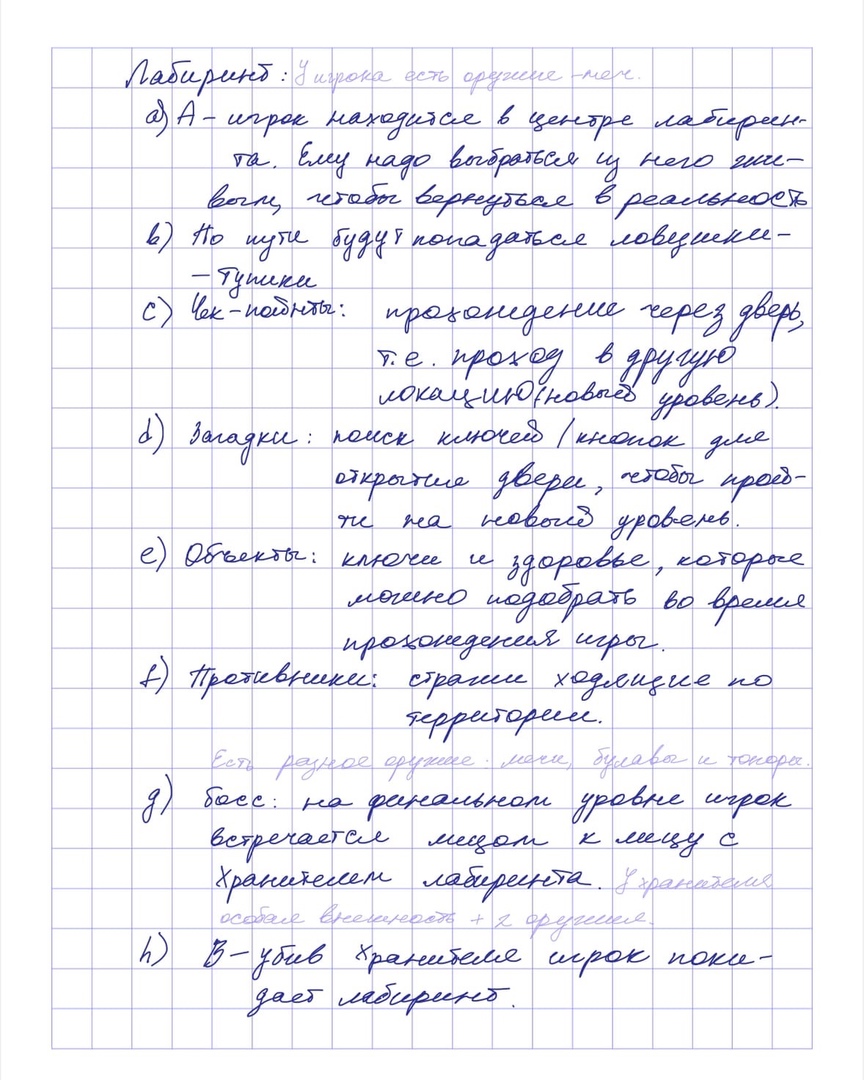 Лабиринт: У игрока есть оружие - меч.
a) А – игрок находится в центре лабирин-
та. Ему надо выбраться из него жи-
вым, чтобы вернуться в реальность
b) По пути будут попадаться ловушки –
– тупики
c) Чек-пойнты: прохождение через дверь,
т.е. проход в другую
локацию (новый уровень).
d) Загадки: поиск ключей / кнопок для
открытия двери, чтобы прой-
ти на новый уровень.
e) Объекты: ключи и здоровье, которые
можно подобрать во время
прохождения игры.
f) Противники: стражи ходящие по
территории.
Есть разное оружие: мечи, булавы и топоры.
g) босс: на финальном уровне игрок
встречается лицом к лицу с
Хранителем лабиринта. У хранителя
особая внешность + 2 оружия.
h) В – убив Хранителя игрок поки-
дает лабиринт.